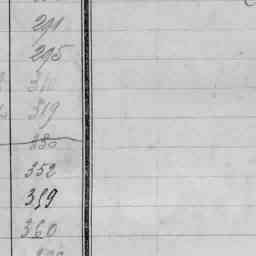 291
295
310
319
330
352
359
360